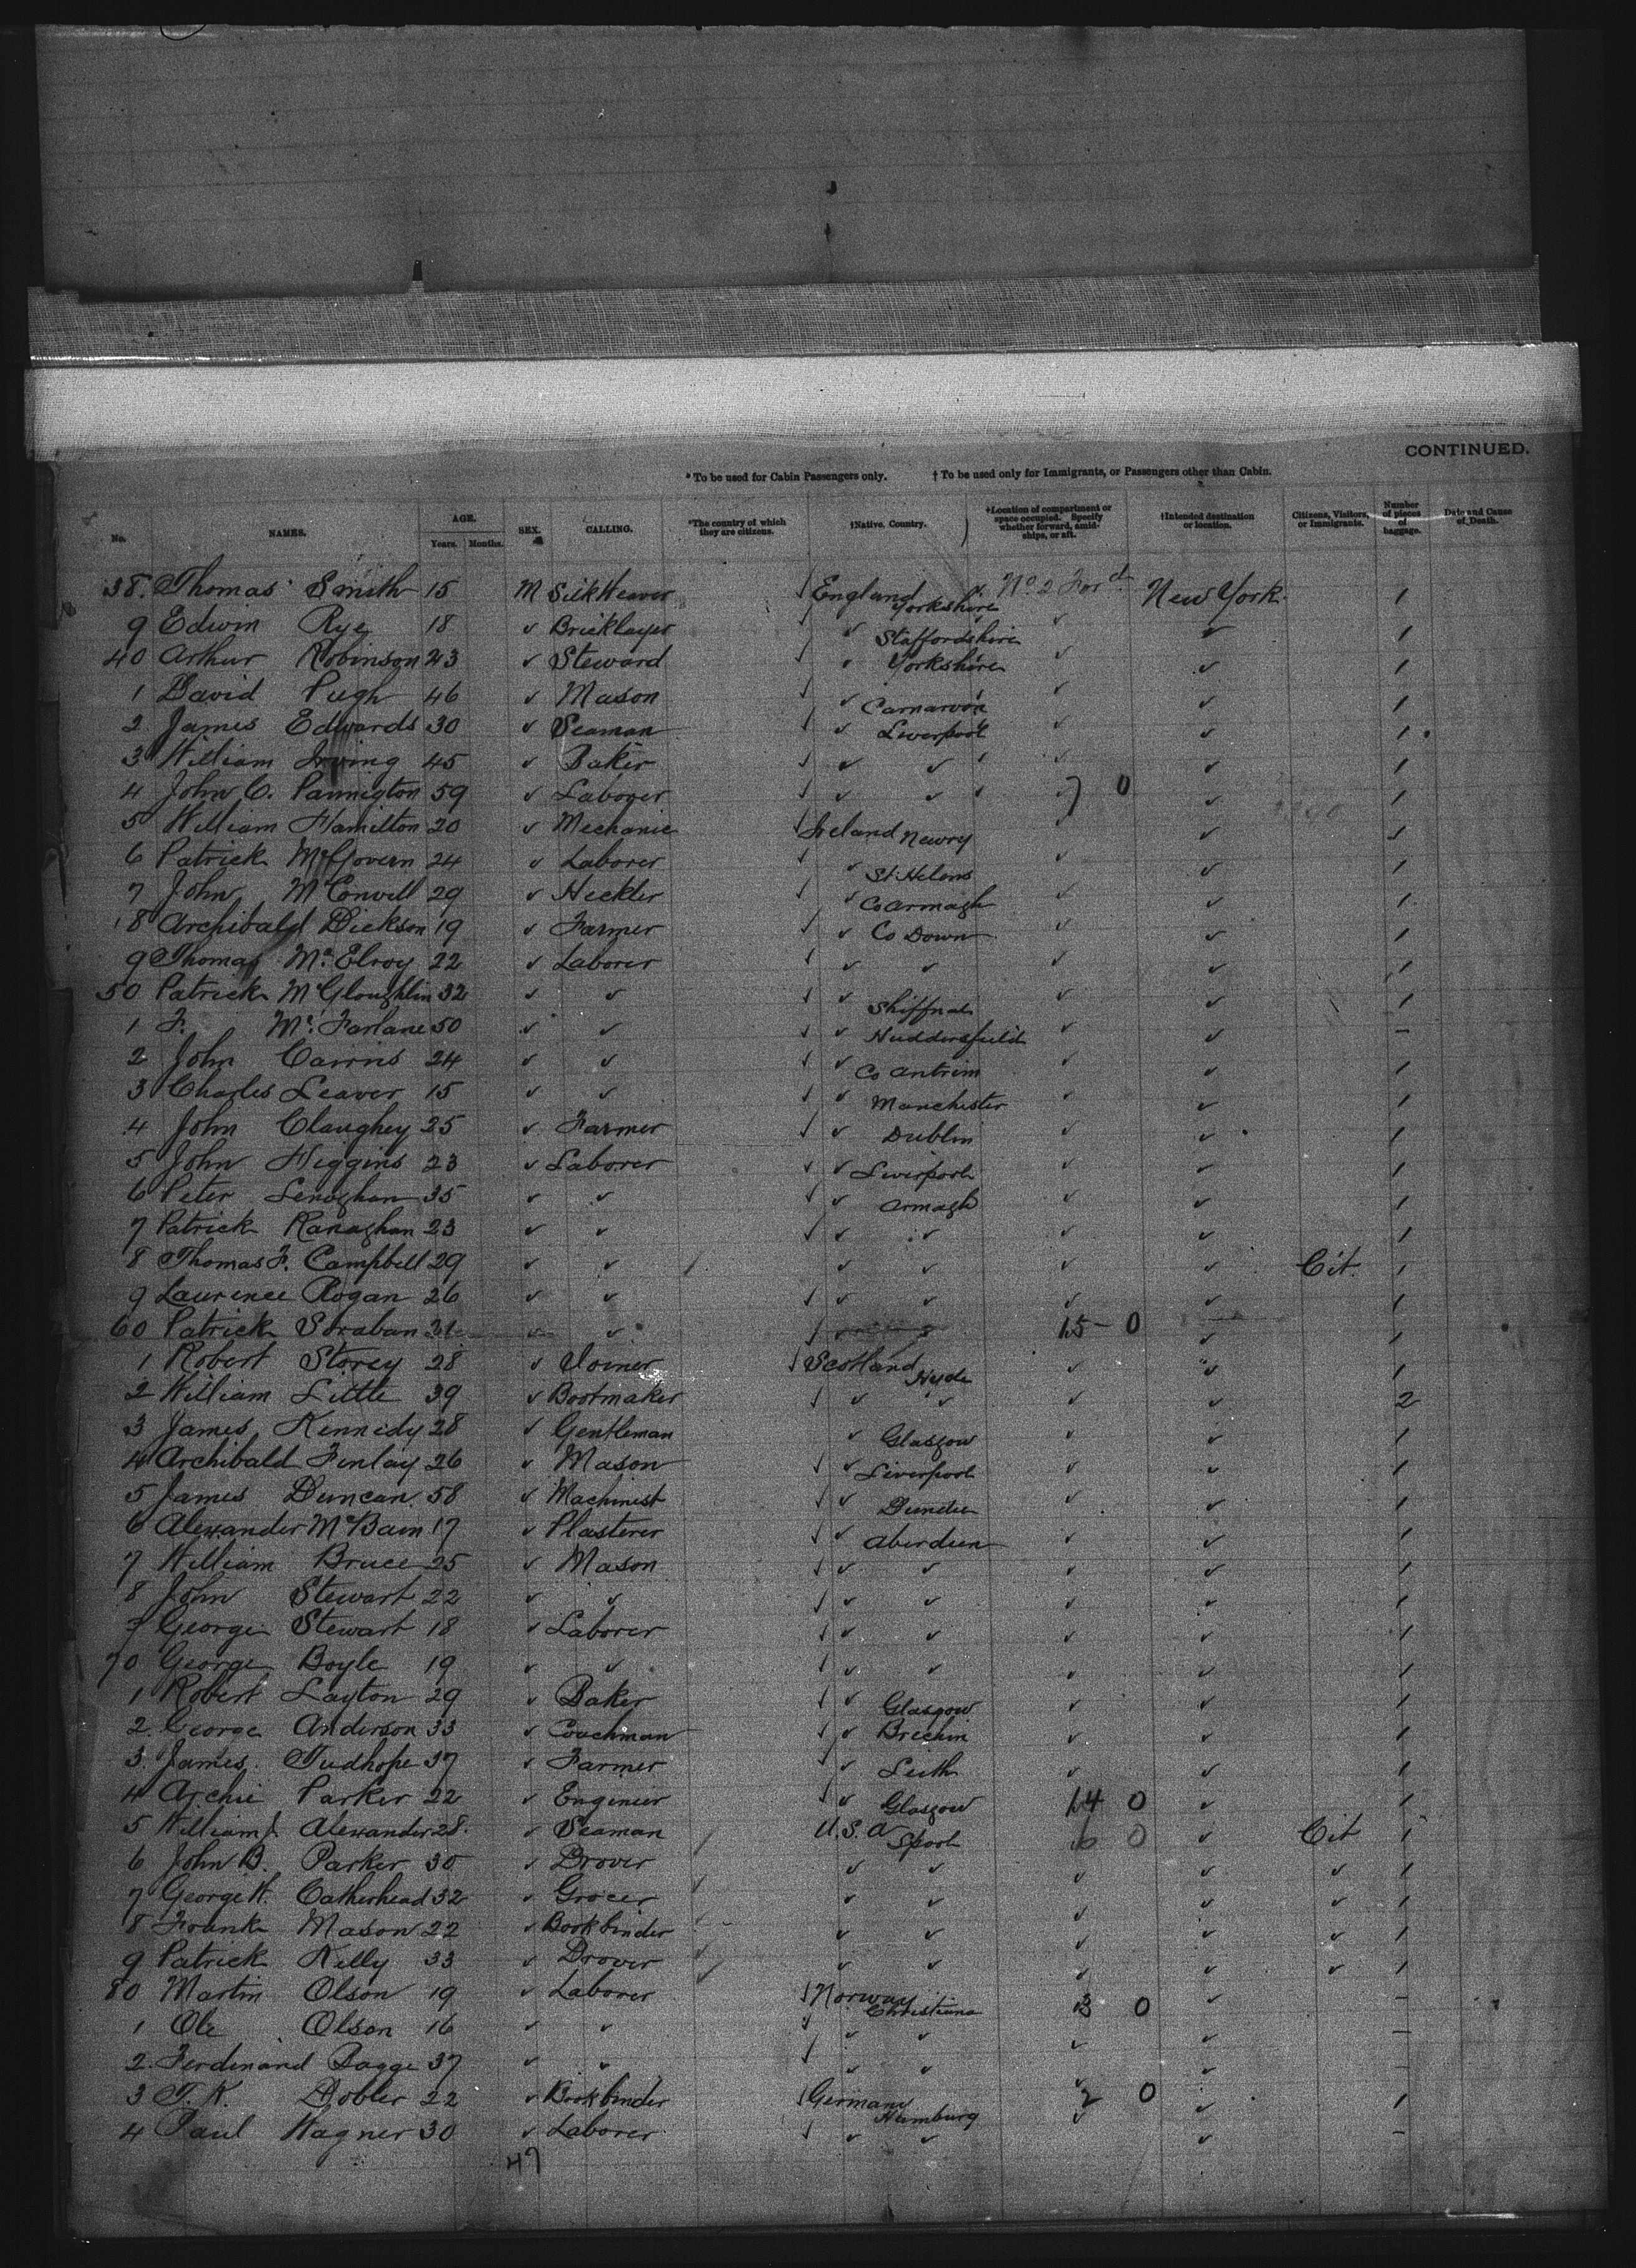 CONTINUED.
* To be used for Cabin Passengers only. † To be used only for Immigrants, or Passengers other than Cabin.
No. NAMES. AGE. Years. Months. SEX. CALLING. *The country of which they are citizens. †Native, Country. †Location of compartment or space occupied. Specify whether forward, amidships, or aft. †Intended destination or location. Citizens, Visitors, or Immigrants. Number of pieces of baggage. Date and Cause of Death.
38. Thomas Smith 15 M Silk Weaver England Yorkshire No 2 Ford New York 1
9 Edwin Rye 18 ✓ Bricklayer ✓ Staffordshire ✓ ✓ 1
40 Arthur Robinson 23 ✓ Steward ✓ Yorkshire ✓ ✓ 1
1 David Pugh 46 ✓ Mason ✓ Carnarvon ✓ ✓ 1
2 James Edwards 30 ✓ Seaman ✓ Liverpool ✓ ✓ 1
3 William Irving 45 ✓ Baker ✓ ✓ ✓ ✓ 1
4 John C. Pannigton 59 ✓ Laborer ✓ ✓ 7 0 ✓ 1
5 William Hamilton 20 ✓ Mechanic Ireland Newry ✓ ✓ 1
6 Patrick McGovern 24 ✓ Laborer ✓ St Helens ✓ ✓ 1
7 John McConvill 29 ✓ Heckler ✓ Co Armagh ✓ ✓ 1
8 Archibald Dickson 19 ✓ Farmer ✓ Co Down ✓ ✓ 1
9 Thomas McElroy 22 ✓ Laborer ✓ ✓ ✓ ✓ 1
50 Patrick McGloughlin 32 ✓ ✓ ✓ Shiffnal ✓ ✓ 1
1 F. McFarlane 50 ✓ ✓ ✓ Huddersfield ✓ ✓ –
2 John Cairns 24 ✓ ✓ ✓ Co Antrim ✓ ✓ 1
3 Charles Leaver 15 ✓ ✓ ✓ Manchester ✓ ✓ 1
4 John Claughey 25 ✓ Farmer ✓ Dublin ✓ ✓ 1
5 John Higgins 23 ✓ Laborer ✓ Liverpool ✓ ✓ 1
6 Peter Lenaghan 35 ✓ ✓ ✓ Armagh ✓ ✓ 1
7 Patrick Ranaghan 23 ✓ ✓ ✓ ✓ ✓ ✓ 1
8 Thomas F. Campbell 29 ✓ ✓ ✓ ✓ ✓ ✓ Cit. 1
9 Laurence Rogan 26 ✓ ✓ ✓ ✓ ✓ ✓ 1
60 Patrick Soraban 31 ✓ ✓ ✓ ✓ 15 – 0 ✓ 1
1 Robert Storey 28 ✓ Joiner Scotland Hyde ✓ ✓ 1
2 William Little 39 ✓ Bootmaker ✓ ✓ ✓ ✓ 2
3 James Kennidy 28 ✓ Gentleman ✓ Glasgow ✓ ✓ 1
4 Archibald Finlay 26 ✓ Mason ✓ Liverpool ✓ ✓ 1
5 James Duncan 58 ✓ Machinist ✓ Dundee ✓ ✓ 1
6 Alexander McBain 17 ✓ Plasterer ✓ Aberdeen ✓ ✓ 1
7 William Bruce 25 ✓ Mason ✓ ✓ ✓ ✓ 1
8 John Stewart 22 ✓ ✓ ✓ ✓ ✓ ✓ 1
9 George Stewart 18 ✓ Laborer ✓ ✓ ✓ ✓ 1
70 George Boyle 19 ✓ ✓ ✓ ✓ ✓ ✓ 1
1 Robert Layton 29 ✓ Baker ✓ Glasgow ✓ ✓ 1
2. George Anderson 33 ✓ Coachman ✓ Brechin ✓ ✓ 1
3. James Tudhope 37 ✓ Farmer ✓ Leith ✓ ✓ 1
4 Archie Parker 22 ✓ Engineer ✓ Glasgow 14 0 ✓ 1
5 William J. Alexander 28. ✓ Seaman U.S.A Spool 6 0 ✓ Cit 1
6 John B. Parker 30 ✓ Drover ✓ ✓ ✓ ✓ ✓ 1
7 George W. Catherhead 32 ✓ Grocer ✓ ✓ ✓ ✓ ✓ 1
8 Frank Mason 22 ✓ Bookbinder ✓ ✓ ✓ ✓ ✓ 1
9 Patrick Killy 33 ✓ Drover ✓ ✓ ✓ ✓ ✓ 1
80 Martin Olson 19 ✓ Laborer Norway Christiana 3 0 ✓ –
1 Ole Olson 16 ✓ ✓ ✓ ✓ ✓ ✓ –
2. Ferdinand Bagge 37 ✓ ✓ ✓ ✓ ✓ ✓ –
3 T. K. Dobler 22 ✓ Bookbinder Germany Hamburg 2 0 ✓ 1
4 Paul Wagner 30 ✓ Laborer ✓ ✓ ✓ ✓ –
47